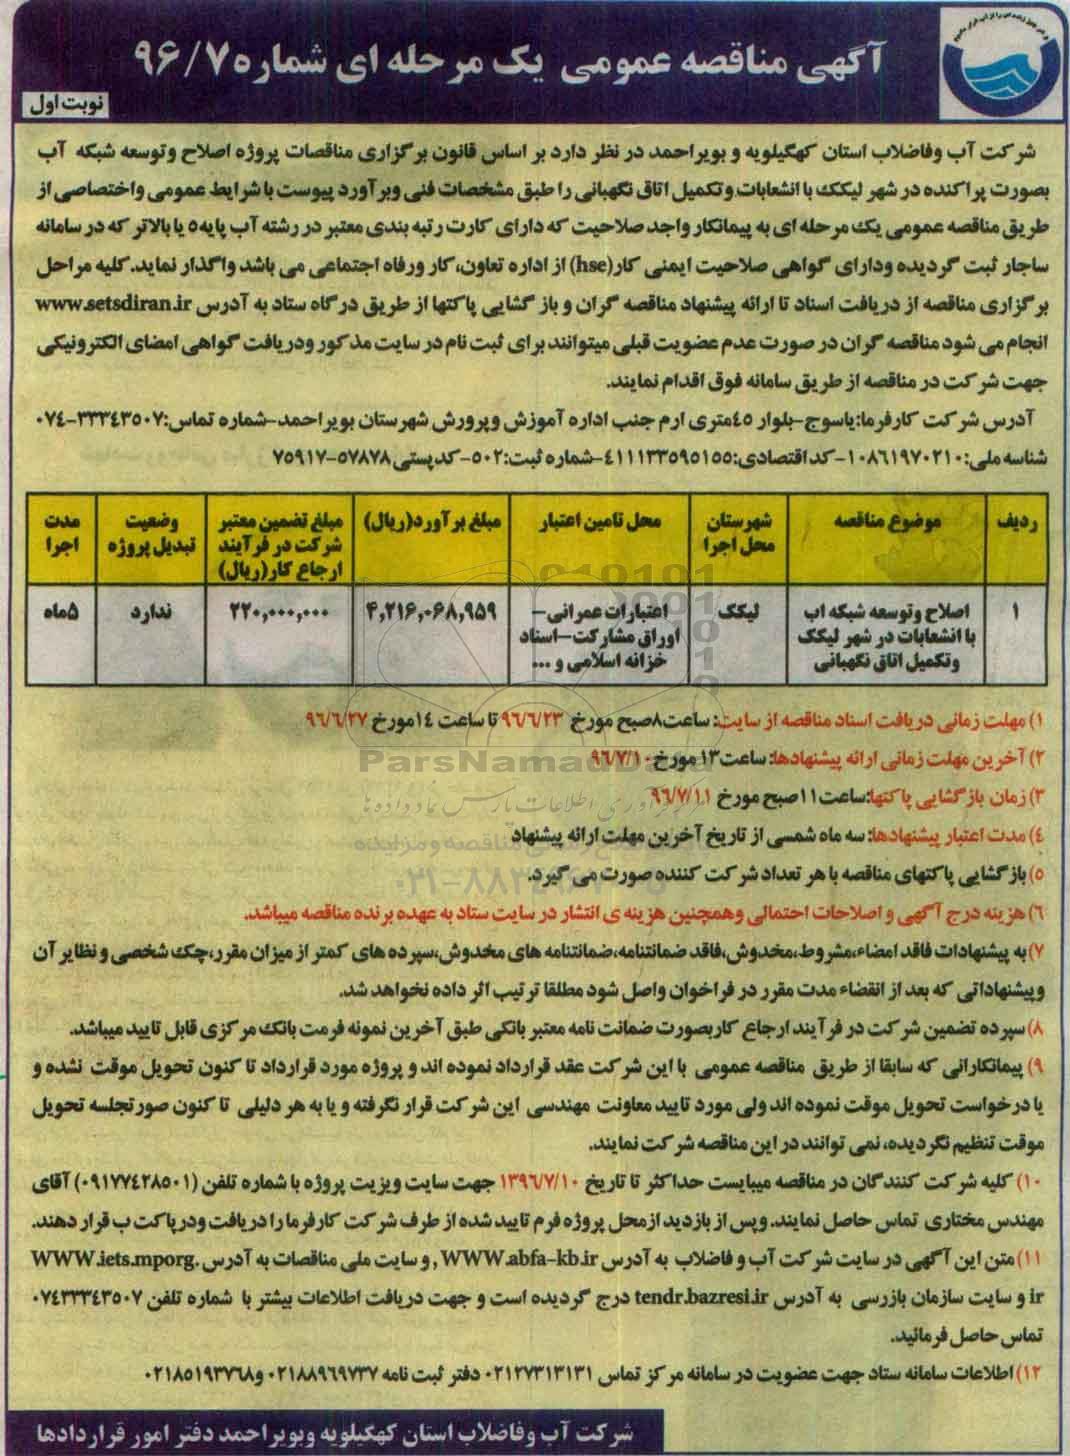 آگهی مناقصه عمومی یک مرحله ای شماره ۹۶/۷
نوبت اول
شرکت آب وفاضلاب استان کهگیلویه و بویراحمد در نظر دارد بر اساس قانون برگزاری مناقصات پروژه اصلاح وتوسعه شبکه آب
بصورت پراکنده در شهر لیکک با انشعابات وتکمیل اتاق نگهبانی را طبق مشخصات فنی وبرآورد پیوست با شرایط عمومی واختصاصی از
طریق مناقصه عمومی یک مرحله ای به پیمانکار واجد صلاحیت که دارای کارت رتبه بندی معتبر در رشته آب پایه۵ یا بالاتر که در سامانه
ساجار ثبت گردیده ودارای گواهی صلاحیت ایمنی کار(hse) از اداره تعاون،کار ورفاه اجتماعی می باشد واگذار نماید.کلیه مراحل
برگزاری مناقصه از دریافت اسناد تا ارائه پیشنهاد مناقصه گران و باز گشایی پاکتها از طریق درگاه ستاد به آدرس www.setsdiran.ir
انجام می شود مناقصه گران در صورت عدم عضویت قبلی میتوانند برای ثبت نام در سایت مذکور ودریافت گواهی امضای الکترونیکی
جهت شرکت در مناقصه از طریق سامانه فوق اقدام نمایند.
آدرس شرکت کارفرما:یاسوج-بلوار ٤٥متری ارم جنب اداره آموزش وپرورش شهرستان بویراحمد-شماره تماس:۳۳۳٤۳۵۰۷-۰۷٤
شناسه ملی:۱۰۸٦۱۹۷۰۲۱۰-کد اقتصادی:٤۱۱۱۳۳۵۹۵۱۵۵-شماره ثبت:۵۰۲-کدپستی۵۷۸۷۸-۷۵۹۱۷
ردیف | موضوع مناقصه | شهرستان محل اجرا | محل تامین اعتبار | مبلغ برآورد(ریال) | مبلغ تضمین معتبر شرکت در فرآیند ارجاع کار(ریال) | وضعیت تبدیل پروژه | مدت اجرا
۱ | اصلاح وتوسعه شبکه اب با انشعابات در شهر لیکک وتکمیل اتاق نگهبانی | لیکک | اعتبارات عمرانی- اوراق مشارکت-اسناد خزانه اسلامی و ... | ۴,۲۱۶,۰۶۸,۹۵۹ | ۲۲۰,۰۰۰,۰۰۰ | ندارد | ۵ماه
ParsNamadData
۱) مهلت زمانی دریافت اسناد مناقصه از سایت: ساعت۸صبح مورخ ۹٦/٦/۲۳ تا ساعت ۱٤مورخ ۹٦/٦/۲۷
۲) آخرین مهلت زمانی ارائه پیشنهادها: ساعت۱۳ مورخ ۹٦/۷/۱۰
۳) زمان بازگشایی پاکتها:ساعت۱۱صبح مورخ ۹٦/۷/۱۱
٤) مدت اعتبار پیشنهادها: سه ماه شمسی از تاریخ آخرین مهلت ارائه پیشنهاد
۵) بازگشایی پاکتهای مناقصه با هر تعداد شرکت کننده صورت می گیرد.
٦) هزینه درج آگهی و اصلاحات احتمالی وهمچنین هزینه ی انتشار در سایت ستاد به عهده برنده مناقصه میباشد.
۷) به پیشنهادات فاقد امضاء،مشروط،مخدوش،فاقد ضمانتنامه،ضمانتنامه های مخدوش،سپرده های کمتر از میزان مقرر،چک شخصی و نظایر آن
وپیشنهاداتی که بعد از انقضاء مدت مقرر در فراخوان واصل شود مطلقا ترتیب اثر داده نخواهد شد.
۸) سپرده تضمین شرکت در فرآیند ارجاع کاربصورت ضمانت نامه معتبر بانکی طبق آخرین نمونه فرمت بانک مرکزی قابل تایید میباشد.
۹) پیمانکارانی که سابقا از طریق مناقصه عمومی با این شرکت عقد قرارداد نموده اند و پروژه مورد قرارداد تا کنون تحویل موقت نشده و
یا درخواست تحویل موقت نموده اند ولی مورد تایید معاونت مهندسی این شرکت قرار نگرفته و یا به هر دلیلی تا کنون صورتجلسه تحویل
موقت تنظیم نگردیده، نمی توانند در این مناقصه شرکت نمایند.
۱۰) کلیه شرکت کنندگان در مناقصه میبایست حداکثر تا تاریخ ۱۳۹٦/۷/۱۰ جهت سایت ویزیت پروژه با شماره تلفن (۰۹۱۷۷٤۲۸۵۰۱) آقای
مهندس مختاری تماس حاصل نمایند. وپس از بازدید ازمحل پروژه فرم تایید شده از طرف شرکت کارفرما را دریافت ودرپاکت ب قرار دهند.
۱۱) متن این آگهی در سایت شرکت آب و فاضلاب به آدرس WWW.abfa-kb.ir , و سایت ملی مناقصات به آدرس WWW.iets.mporg.
ir و سایت سازمان بازرسی به آدرس tendr.bazresi.ir درج گردیده است و جهت دریافت اطلاعات بیشتر با شماره تلفن ۰۷٤۳۳۳٤۳۵۰۷
تماس حاصل فرمائید.
۱۲) اطلاعات سامانه ستاد جهت عضویت در سامانه مرکز تماس ۰۲۱۲۷۳۱۳۱۳۱ دفتر ثبت نامه ۰۲۱۸۸۹٦۹۷۳۷ و۰۲۱۸۵۱۹۳۷٦۸
شرکت آب وفاضلاب استان کهگیلویه وبویراحمد دفتر امور قراردادها